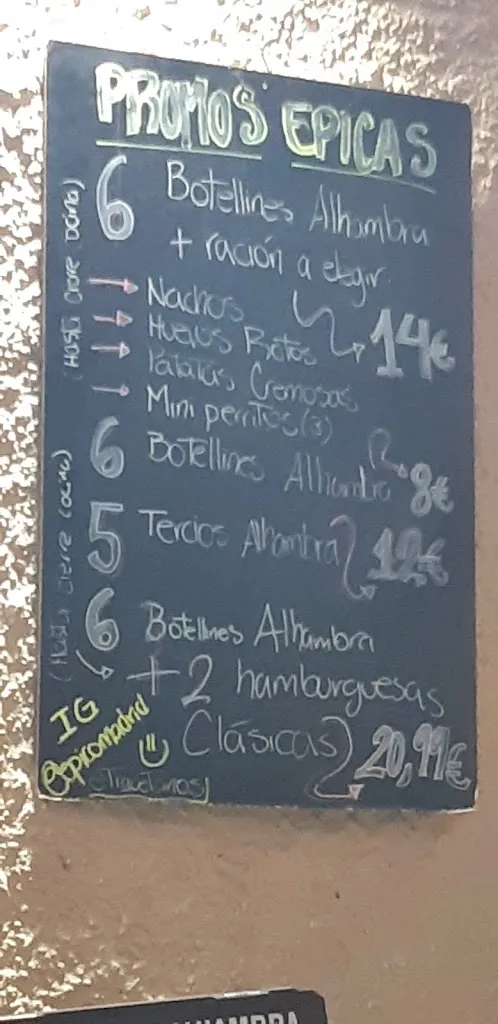 PROMOS EPICAS
6 Botellines Alhambra
+ ración a elegir
14€
Nachos
Huevos Rotos
Patatas Cremosas
Mini perritos (3)
6 Botellines Alhambra 8€
5 Tercios Alhambra 12€
6 Botellines Alhambra
+ 2 hamburguesas
Clásicas 20,99€
(Hasta Cierre Cocina)
(Hasta Cierre Cocina)
IG
@epicomadrid
ALHAMBRA